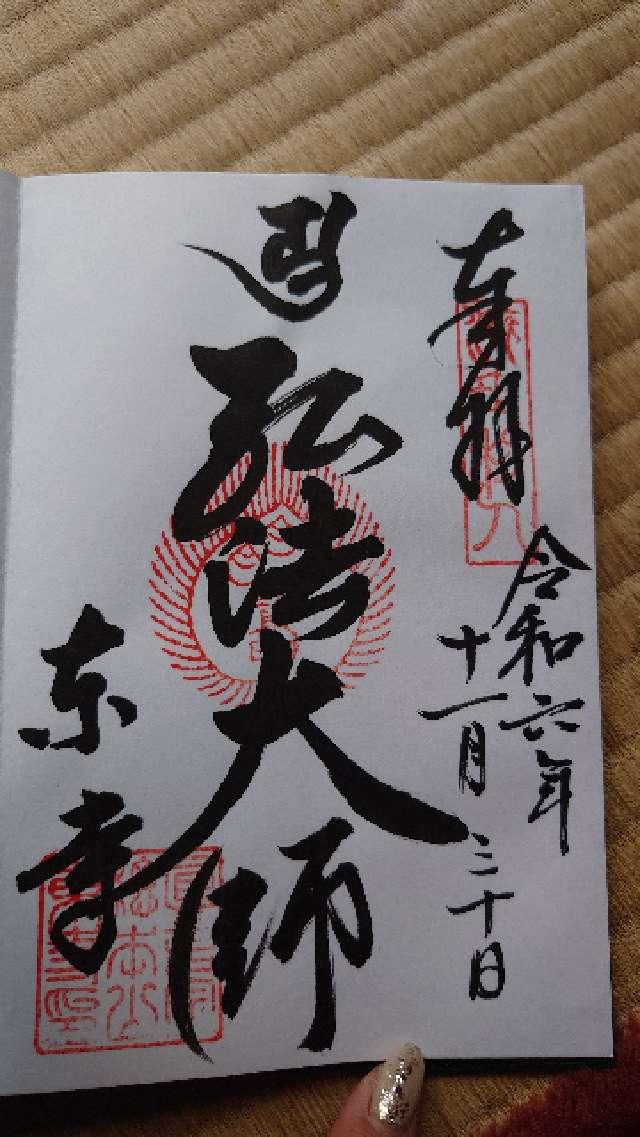 奉拝
令和六年
十一月三十日
弘法大師
東寺